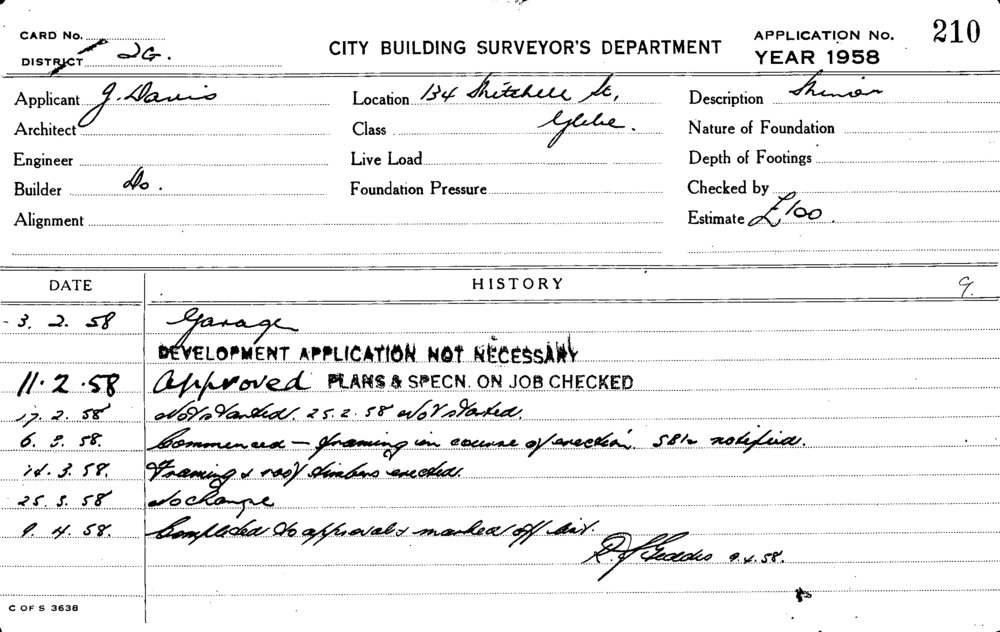 CARD No.
DISTRICT 2G.
CITY BUILDING SURVEYOR'S DEPARTMENT
APPLICATION No. 210
YEAR 1958
Applicant J. Davis
Location 134 Mitchell St,
Description Minor
Architect
Class Glebe.
Nature of Foundation
Engineer
Live Load
Depth of Footings
Builder Do.
Foundation Pressure
Checked by
Alignment
Estimate £100
DATE HISTORY
9.
3. 2. 58 Garage
DEVELOPMENT APPLICATION NOT NECESSARY
11.2.58 Approved PLANS & SPECN. ON JOB CHECKED
17. 2. 58 Not started. 25.2.58 Not started.
6. 3. 58. Commenced – framing in course of erection. notified.
14. 3. 58. Framing & roof timbers erected.
25. 3. 58 No change
9. 4. 58. Completed to approval & marked off list.
Geddes 9.4.58.
C OF S 3638